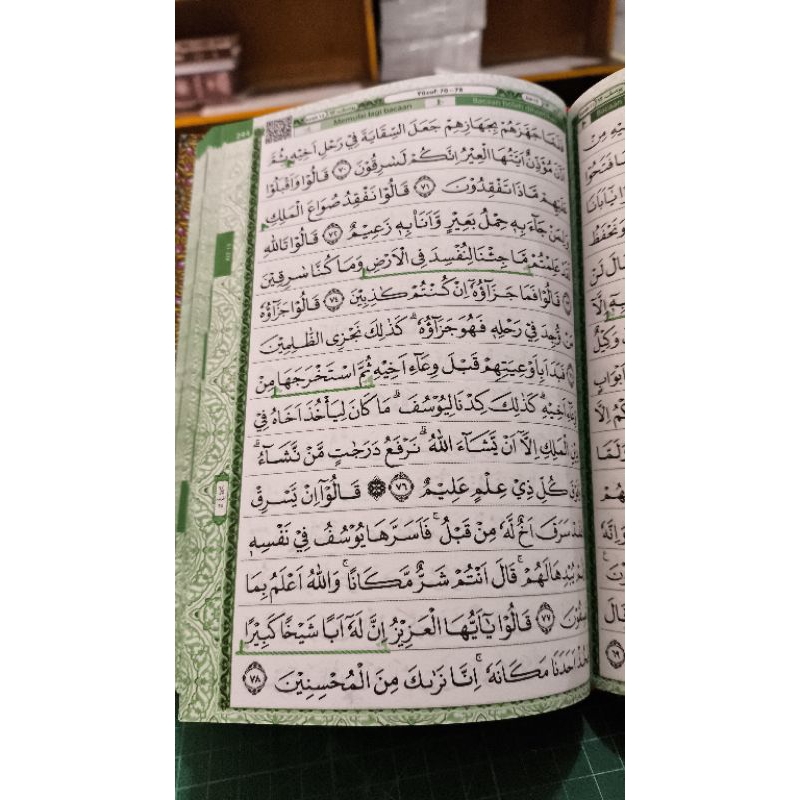 Yusuf 70 - 78
Memulai lagi bacaan
Bacaan boleh
244
جَهَّزَهُمْ بِجَهَازِهِمْ جَعَلَ السِّقَايَةَ فِيْ رَحْلِ اَخِيْهِ ثُمَّ
مُؤَذِّنٌ اَيَّتُهَا الْعِيْرُ اِنَّكُمْ لَسٰرِقُوْنَ ﴿٧٠﴾ قَالُوْا وَاَقْبَلُوْا
عَلَيْهِمْ مَّاذَا تَفْقِدُوْنَ ﴿٧١﴾ قَالُوْا نَفْقِدُ صُوَاعَ الْمَلِكِ
وَلِمَنْ جَاۤءَ بِهٖ حِمْلُ بَعِيْرٍ وَّاَنَا۠ بِهٖ زَعِيْمٌ ﴿٧٢﴾ قَالُوْا تَاللّٰهِ
لَقَدْ عَلِمْتُمْ مَّا جِئْنَا لِنُفْسِدَ فِى الْاَرْضِ وَمَا كُنَّا سٰرِقِيْنَ
قَالُوْا فَمَا جَزَاۤؤُهٗٓ اِنْ كُنْتُمْ كٰذِبِيْنَ ﴿٧٤﴾ قَالُوْا جَزَاۤؤُهٗ
مَنْ وُّجِدَ فِيْ رَحْلِهٖ فَهُوَ جَزَاۤؤُهٗ ۗ كَذٰلِكَ نَجْزِى الظّٰلِمِيْنَ
فَبَدَاَ بِاَوْعِيَتِهِمْ قَبْلَ وِعَاۤءِ اَخِيْهِ ثُمَّ اسْتَخْرَجَهَا مِنْ
اَخِيْهِ ۗ كَذٰلِكَ كِدْنَا لِيُوْسُفَ ۗ مَا كَانَ لِيَأْخُذَ اَخَاهُ فِيْ
الْمَلِكِ اِلَّآ اَنْ يَّشَاۤءَ اللّٰهُ ۗ نَرْفَعُ دَرَجٰتٍ مَّنْ نَّشَاۤءُ ۗ
كُلِّ ذِيْ عِلْمٍ عَلِيْمٌ ﴿٧٦﴾ ۞ قَالُوْٓا اِنْ يَّسْرِقْ
فَقَدْ سَرَقَ اَخٌ لَّهٗ مِنْ قَبْلُ ۚ فَاَسَرَّهَا يُوْسُفُ فِيْ نَفْسِهٖ
يُبْدِهَا لَهُمْ ۚ قَالَ اَنْتُمْ شَرٌّ مَّكَانًا ۚ وَاللّٰهُ اَعْلَمُ بِمَا
تَصِفُوْنَ ﴿٧٧﴾ قَالُوْا يٰٓاَيُّهَا الْعَزِيْزُ اِنَّ لَهٗٓ اَبًا شَيْخًا كَبِيْرًا
فَخُذْ اَحَدَنَا مَكَانَهٗ ۚ اِنَّا نَرٰىكَ مِنَ الْمُحْسِنِيْنَ ﴿٧٨﴾